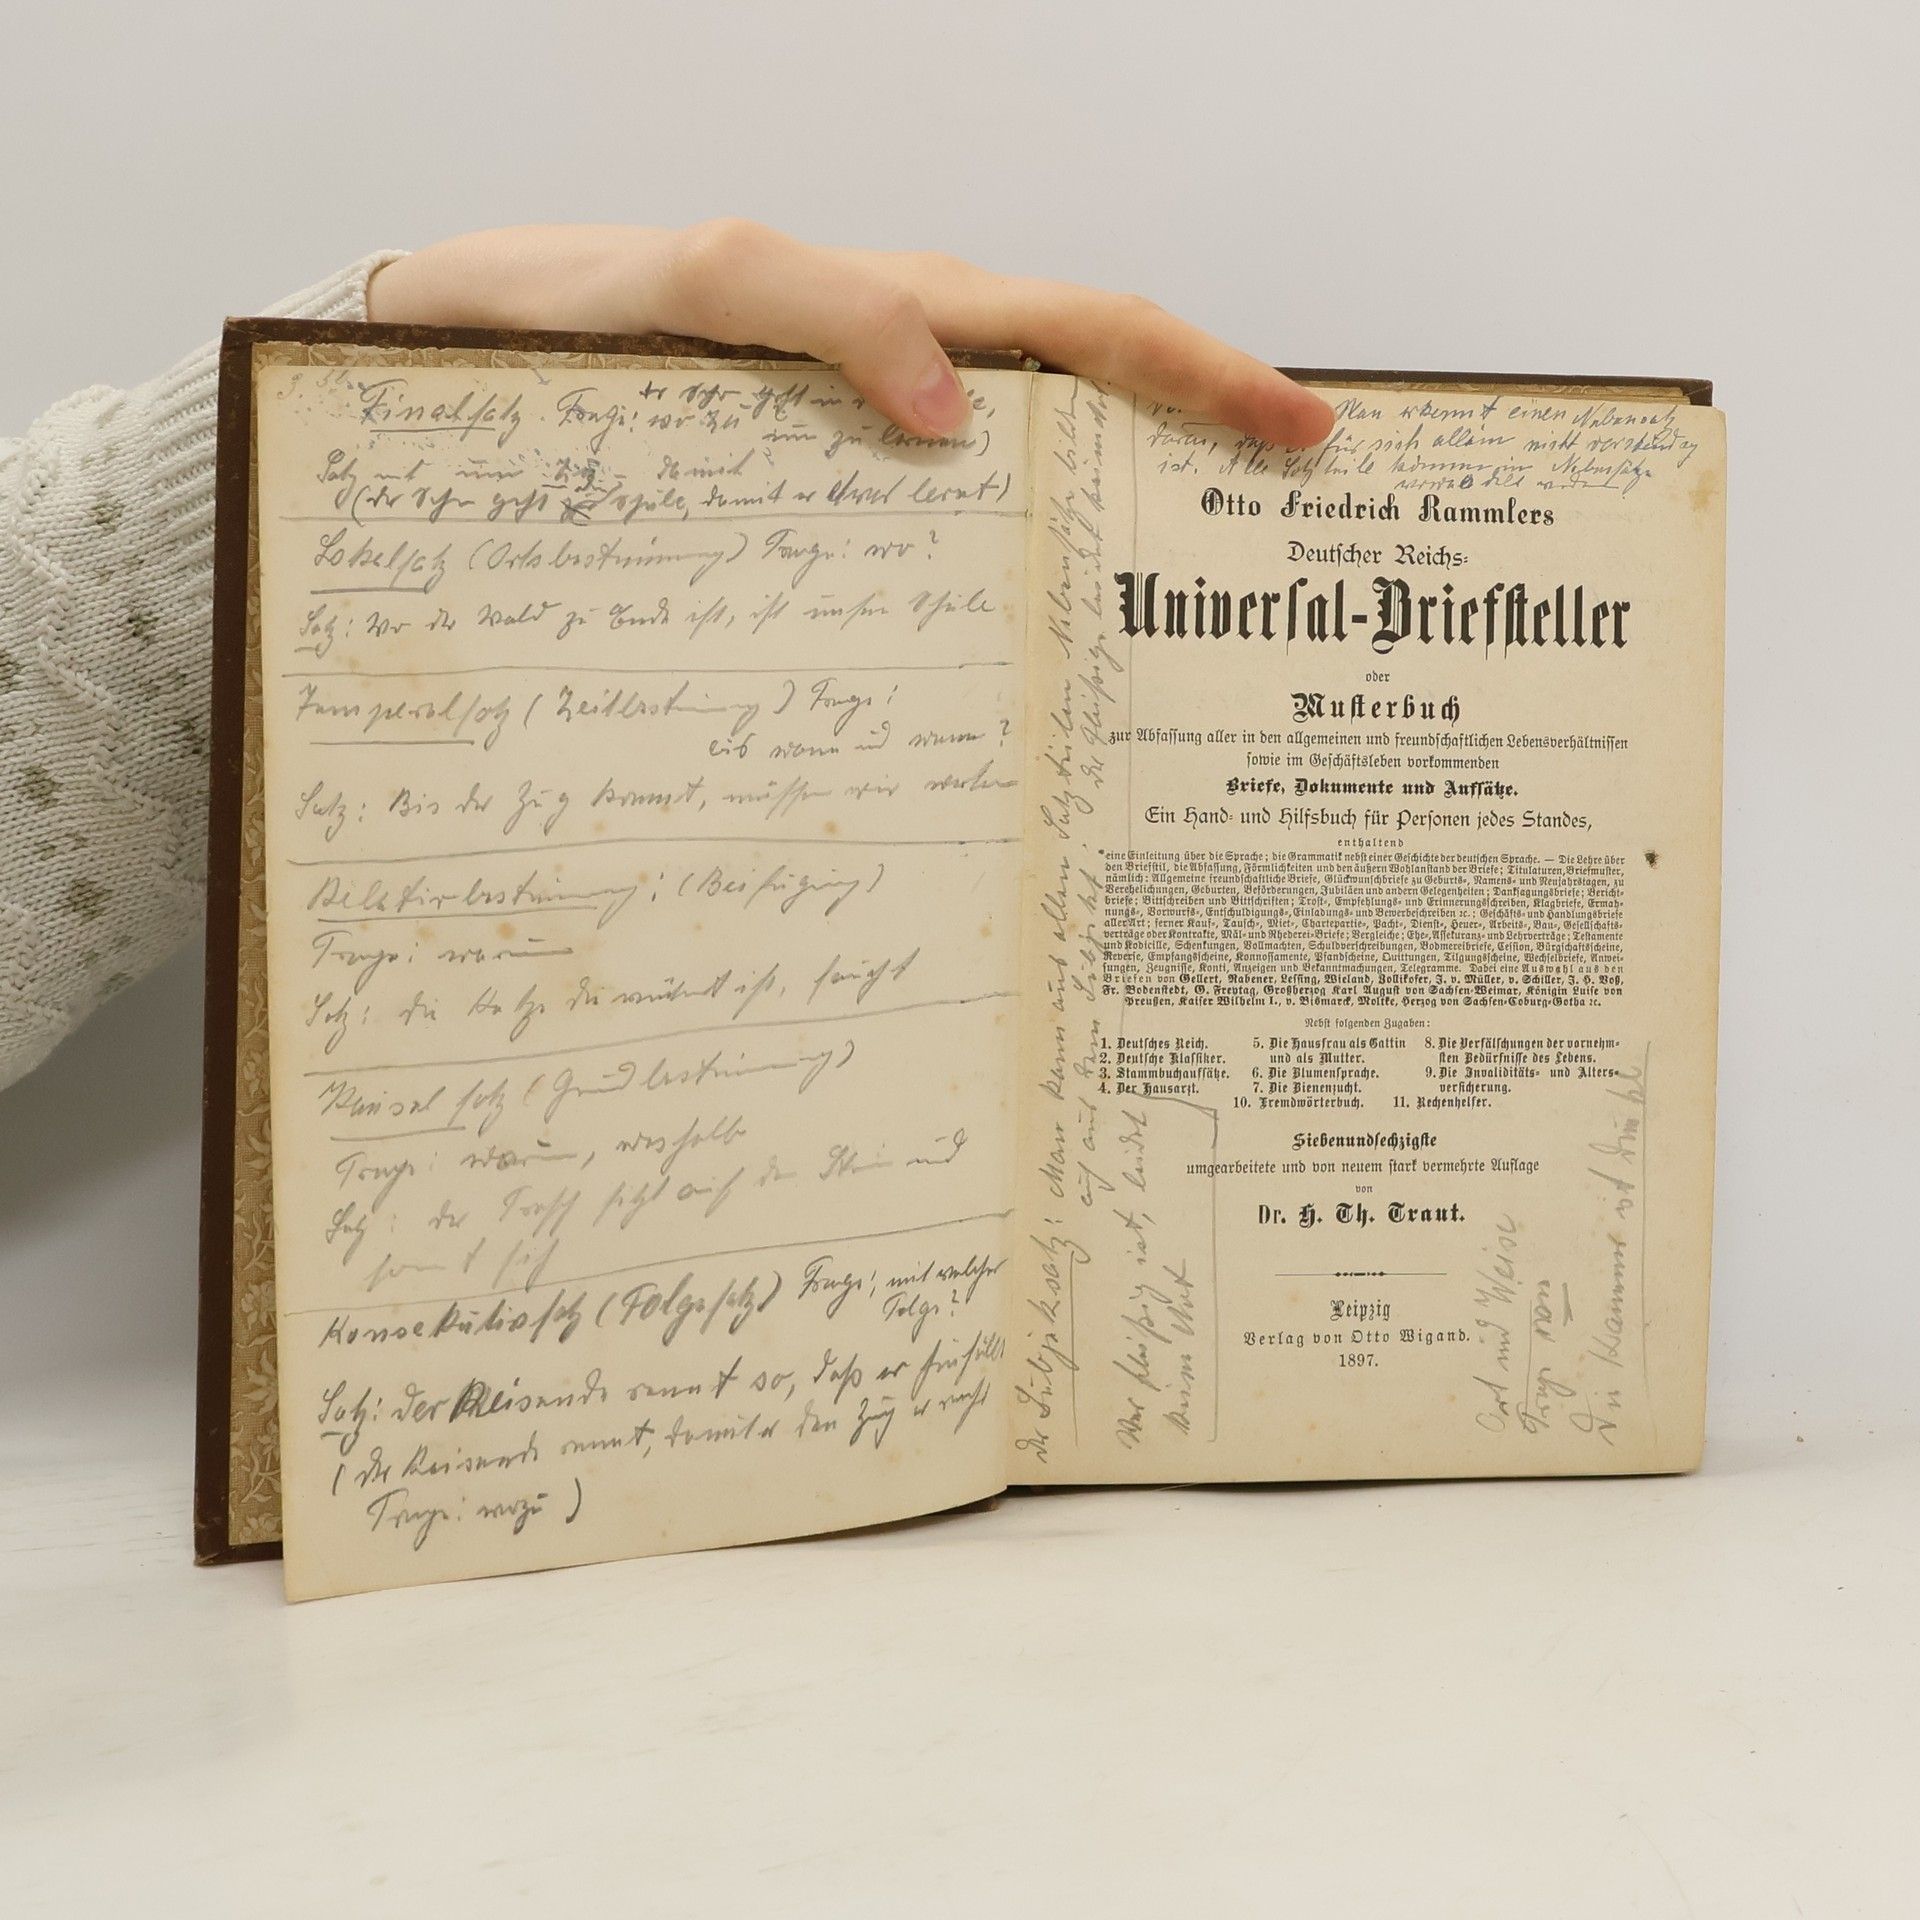 Finalsatz. Frage: wozu
um zu lernen)
Satz mit um zu – damit
(der Sohn geht die Schule, damit er etwas lernt)
Lokalsatz (Ortsbestimmung) Frage: wo?
Satz: Wo der Wald zu Ende ist, ist unsere Schule
Temporalsatz (Zeitbestimmung) Frage:
bis wann und wann?
Satz: Bis der Zug kommt, müssen wir warten
Relativbestimmung: (Beifügung)
Frage: warum
Satz: die Katze die wütend ist, faucht
Kausalsatz (Grundbestimmung)
Frage: warum, weshalb
Satz: der Frosch sitzt auf dem Stein und
sonnt sich
Konsekutivsatz (Folgesatz) Frage: mit welcher
Folge?
Satz: der Reisende rennt so, daß er hinfällt
(der Reisende rennt, damit er den Zug erreicht
Frage: wozu)
Man erkennt einen Nebensatz
daran, daß er für sich allein nicht verständig
ist. Alle Satzteile können in Nebensätze
verwandelt werden
der Subjektsatz: Man kann aus allen Satzteilen Nebensätze bilden
auch aus dem Subjekt. Der Fleißige leidet keine Not.
Wer fleißig ist, leidet
keine Not
Otto Friedrich Rammlers
Deutscher Reichs-
Universal-Briefsteller
oder
Musterbuch
zur Abfassung aller in den allgemeinen und freundschaftlichen Lebensverhältnissen
sowie im Geschäftsleben vorkommenden
Briefe, Dokumente und Aufsätze.
Ein Hand- und Hilfsbuch für Personen jedes Standes,
enthaltend
eine Einleitung über die Sprache; die Grammatik nebst einer Geschichte der deutschen Sprache. — Die Lehre über
den Briefstil, die Abfassung, Förmlichkeiten und den äußern Wohlanstand der Briefe; Titulaturen, Briefmuster,
nämlich: Allgemeine freundschaftliche Briefe, Glückwunschbriefe zu Geburts-, Namens- und Neujahrstagen, zu
Verehelichungen, Geburten, Beförderungen, Jubiläen und andern Gelegenheiten; Danksagungsbriefe; Bericht-
briefe; Bittschreiben und Bittschriften; Trost-, Empfehlungs- und Erinnerungsschreiben, Klagbriefe, Ermah-
nungs-, Vorwurfs-, Entschuldigungs-, Einladungs- und Bewerbeschreiben ꝛc.; Geschäfts- und Handlungsbriefe
aller Art; ferner Kauf-, Tausch-, Miet-, Chartepartie-, Pacht-, Dienst-, Heuer-, Arbeits-, Bau-, Gesellschafts-
verträge oder Kontrakte, Mäl- und Rhederei-Briefe; Vergleiche; Ehe-, Assekuranz- und Lehrverträge; Testamente
und Kodicille, Schenkungen, Vollmachten, Schuldverschreibungen, Bodmereibriefe, Cession, Bürgschaftsscheine,
Reverse, Empfangscheine, Konnossamente, Pfandscheine, Quittungen, Tilgungsscheine, Wechselbriefe, Anwei-
sungen, Zeugnisse, Konti, Anzeigen und Bekanntmachungen, Telegramme. Dabei eine Auswahl aus den
Briefen von Gellert, Rabener, Lessing, Wieland, Zollikofer, J. v. Müller, v. Schiller, J. H. Voß,
Fr. Bodenstedt, G. Freytag, Großherzog Karl August von Sachsen-Weimar, Königin Luise von
Preußen, Kaiser Wilhelm I., v. Bismarck, Moltke, Herzog von Sachsen-Coburg-Gotha ꝛc.
Nebst folgenden Zugaben:
1. Deutsches Reich.
2. Deutsche Klassiker.
3. Stammbuchaufsätze.
4. Der Hausarzt.
5. Die Hausfrau als Gattin
und als Mutter.
6. Die Blumensprache.
7. Die Bienenzucht.
8. Die Verfälschungen der vornehm-
sten Bedürfnisse des Lebens.
9. Die Invaliditäts- und Alters-
versicherung.
10. Fremdwörterbuch. 11. Rechenhelfer.
Siebenundsechzigste
umgearbeitete und von neuem stark vermehrte Auflage
von
Dr. H. Th. Traut.
Leipzig
Verlag von Otto Wigand.
1897.
Art und Weise
Frage von
Die Kammer ist dunkel